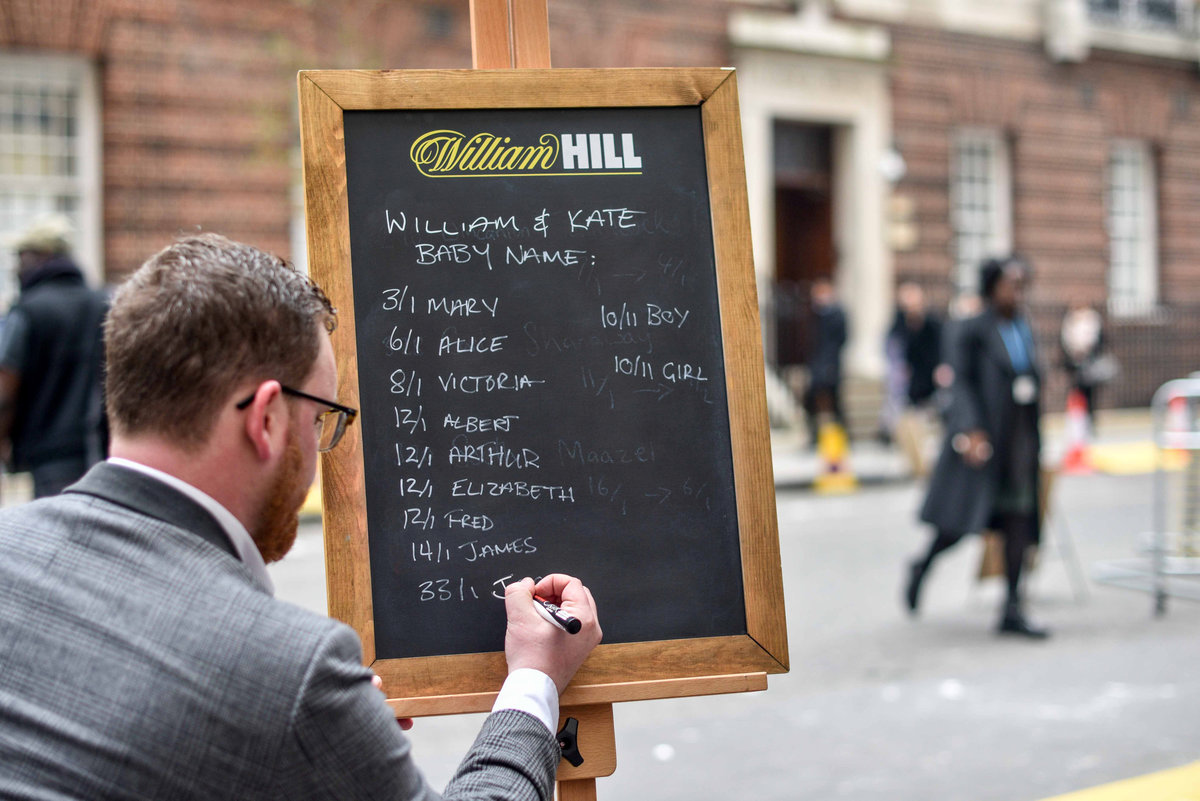 William HILL
WILLIAM & KATE
BABY NAME:
3/1 MARY
6/1 ALICE
8/1 VICTORIA
12/1 ALBERT
12/1 ARTHUR
12/1 ELIZABETH
12/1 FRED
14/1 JAMES
33/1 J
10/11 BOY
10/11 GIRL
Maazel
16/1 → 6/1